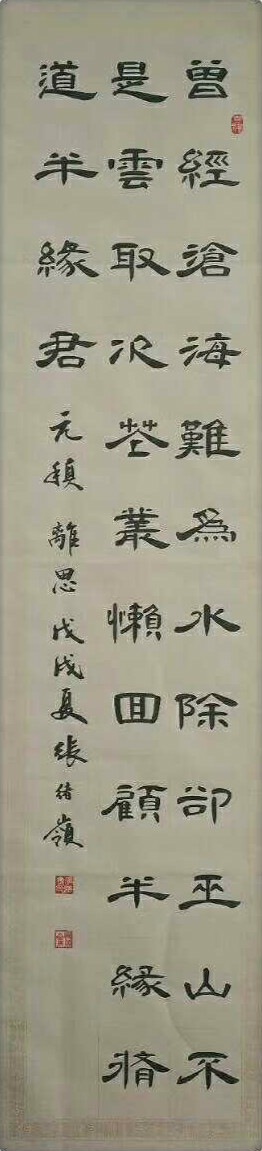 曾經滄海難為水除卻巫山不
是雲取次花叢懶回顧半緣脩
道半緣君
元稹離思戊戌夏張緒嶺